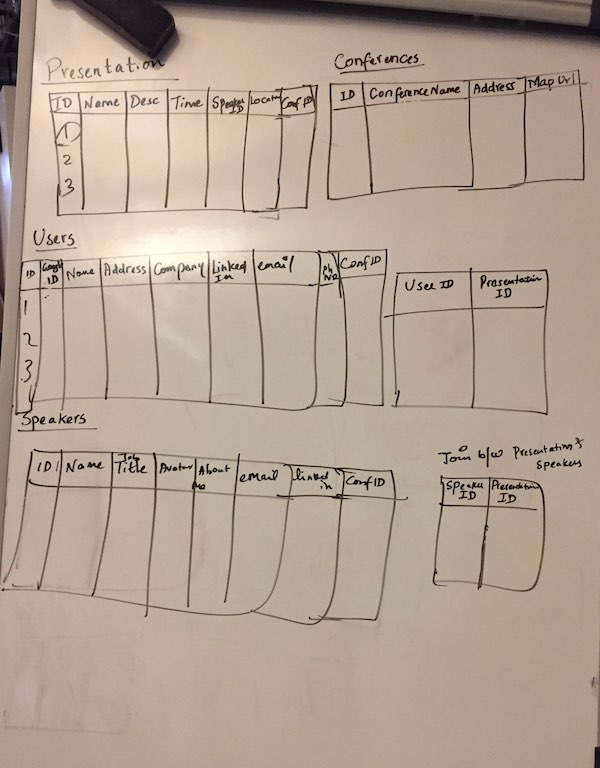 Presentation
ID Name Desc Time Speaker ID Locatn Conf ID
1
2
3
Conferences
ID Conference Name Address Map Url
Users
ID Google ID Name Address Company Linked In email Ph No Conf ID
1
2
3
4
User ID Presentation ID
Speakers
ID Name Job Title Avatar About Me email linked in Conf ID
Join b/w Presentation &
Speakers
Speaker ID Presentation ID